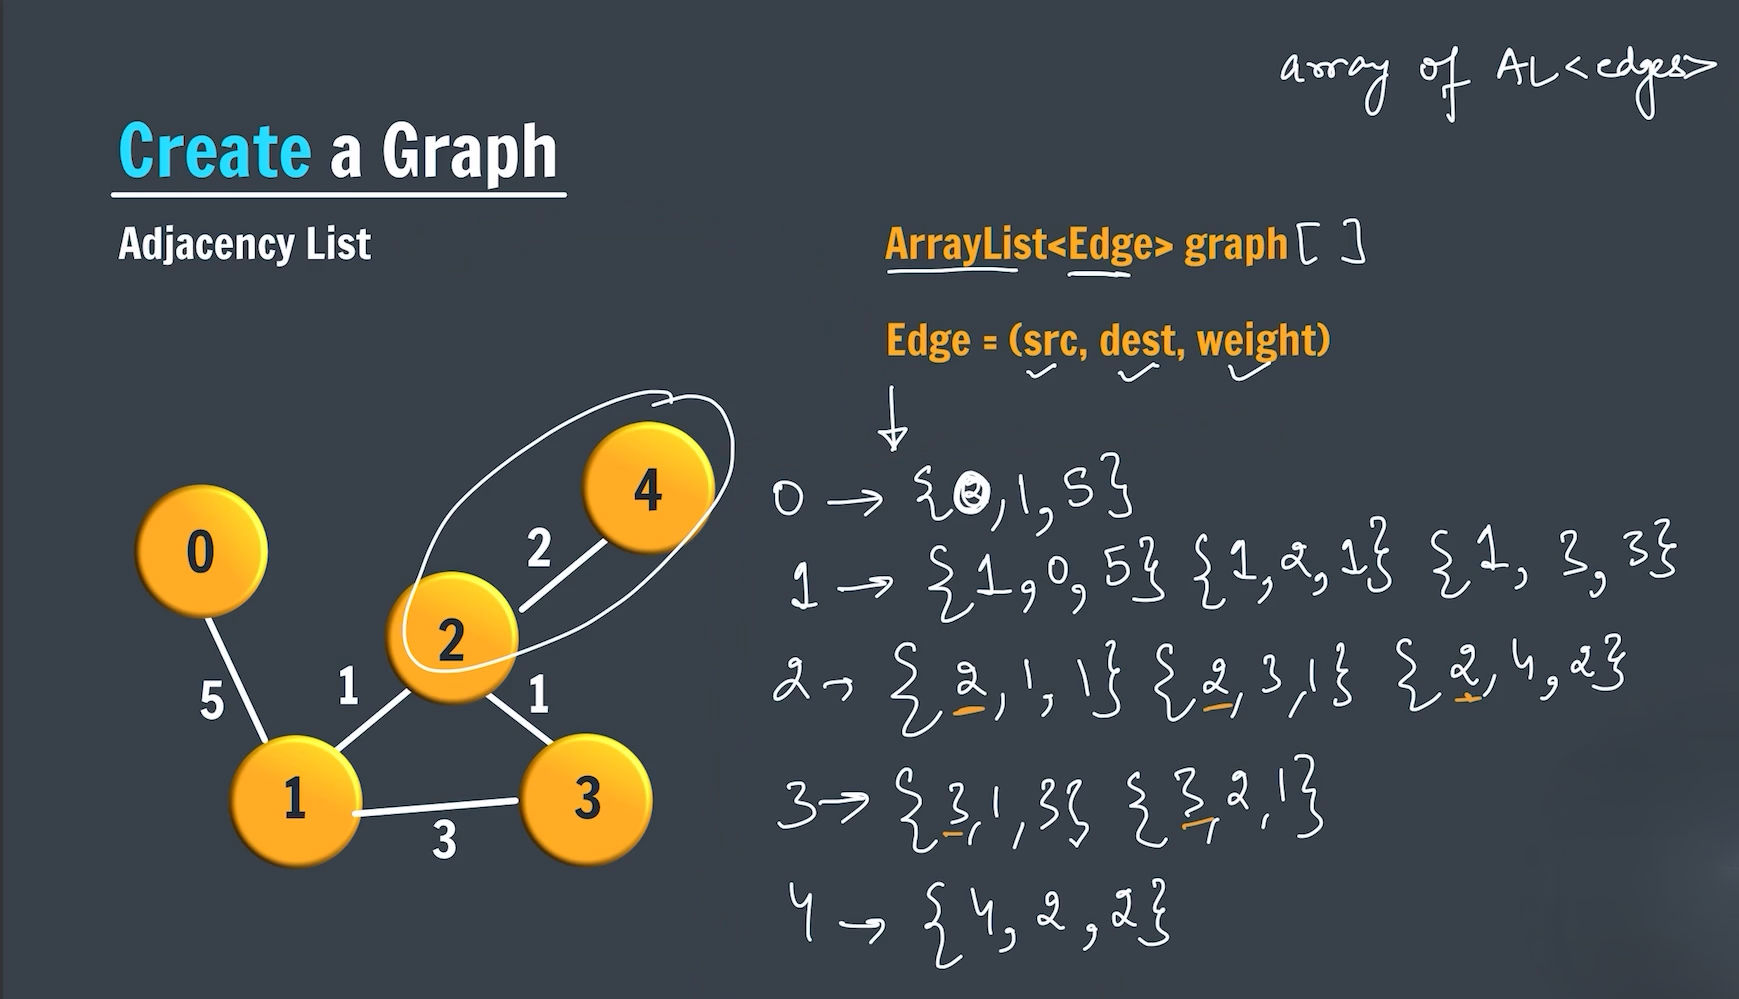 array of AL<edges>
Create a Graph
Adjacency List
ArrayList<Edge> graph[ ]
Edge = (src, dest, weight)
4
0
2
2
5
1
1
1
3
3
0 → { , 1, 5}
1 → {1, 0, 5} {1, 2, 1} {1, 3, 3}
2 → {2, 1, 1} {2, 3, 1} {2, 4, 2}
3 → {3, 1, 3} {3, 2, 1}
4 → {4, 2, 2}